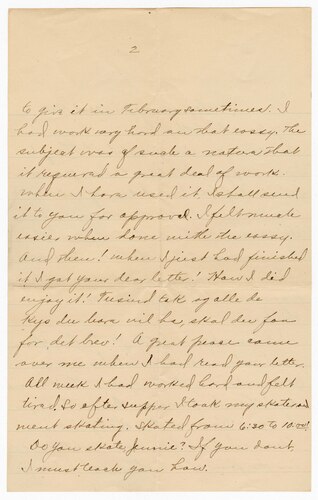 2
to give it in February sometimes. I
had work very hard on that essay. The
subject was of such a nature that
it required a great deal of work.
When I have used it, I shall send
it to you for approval. I felt much
easier when done with the essay.
And then! when I just had finished
it I got your dear letter! How I did
enjoy it! Tusind tak og alle de
kys du bare vil ha, skal du faa
for det brev! A great peace came
over me when I had read your letter.
All week I had worked hard and felt
tired. So after supper I took my skates and
went skating. Skated from 6:30 to 10:00!
Do you skate, Jennie? If you dont
I must teach you how.